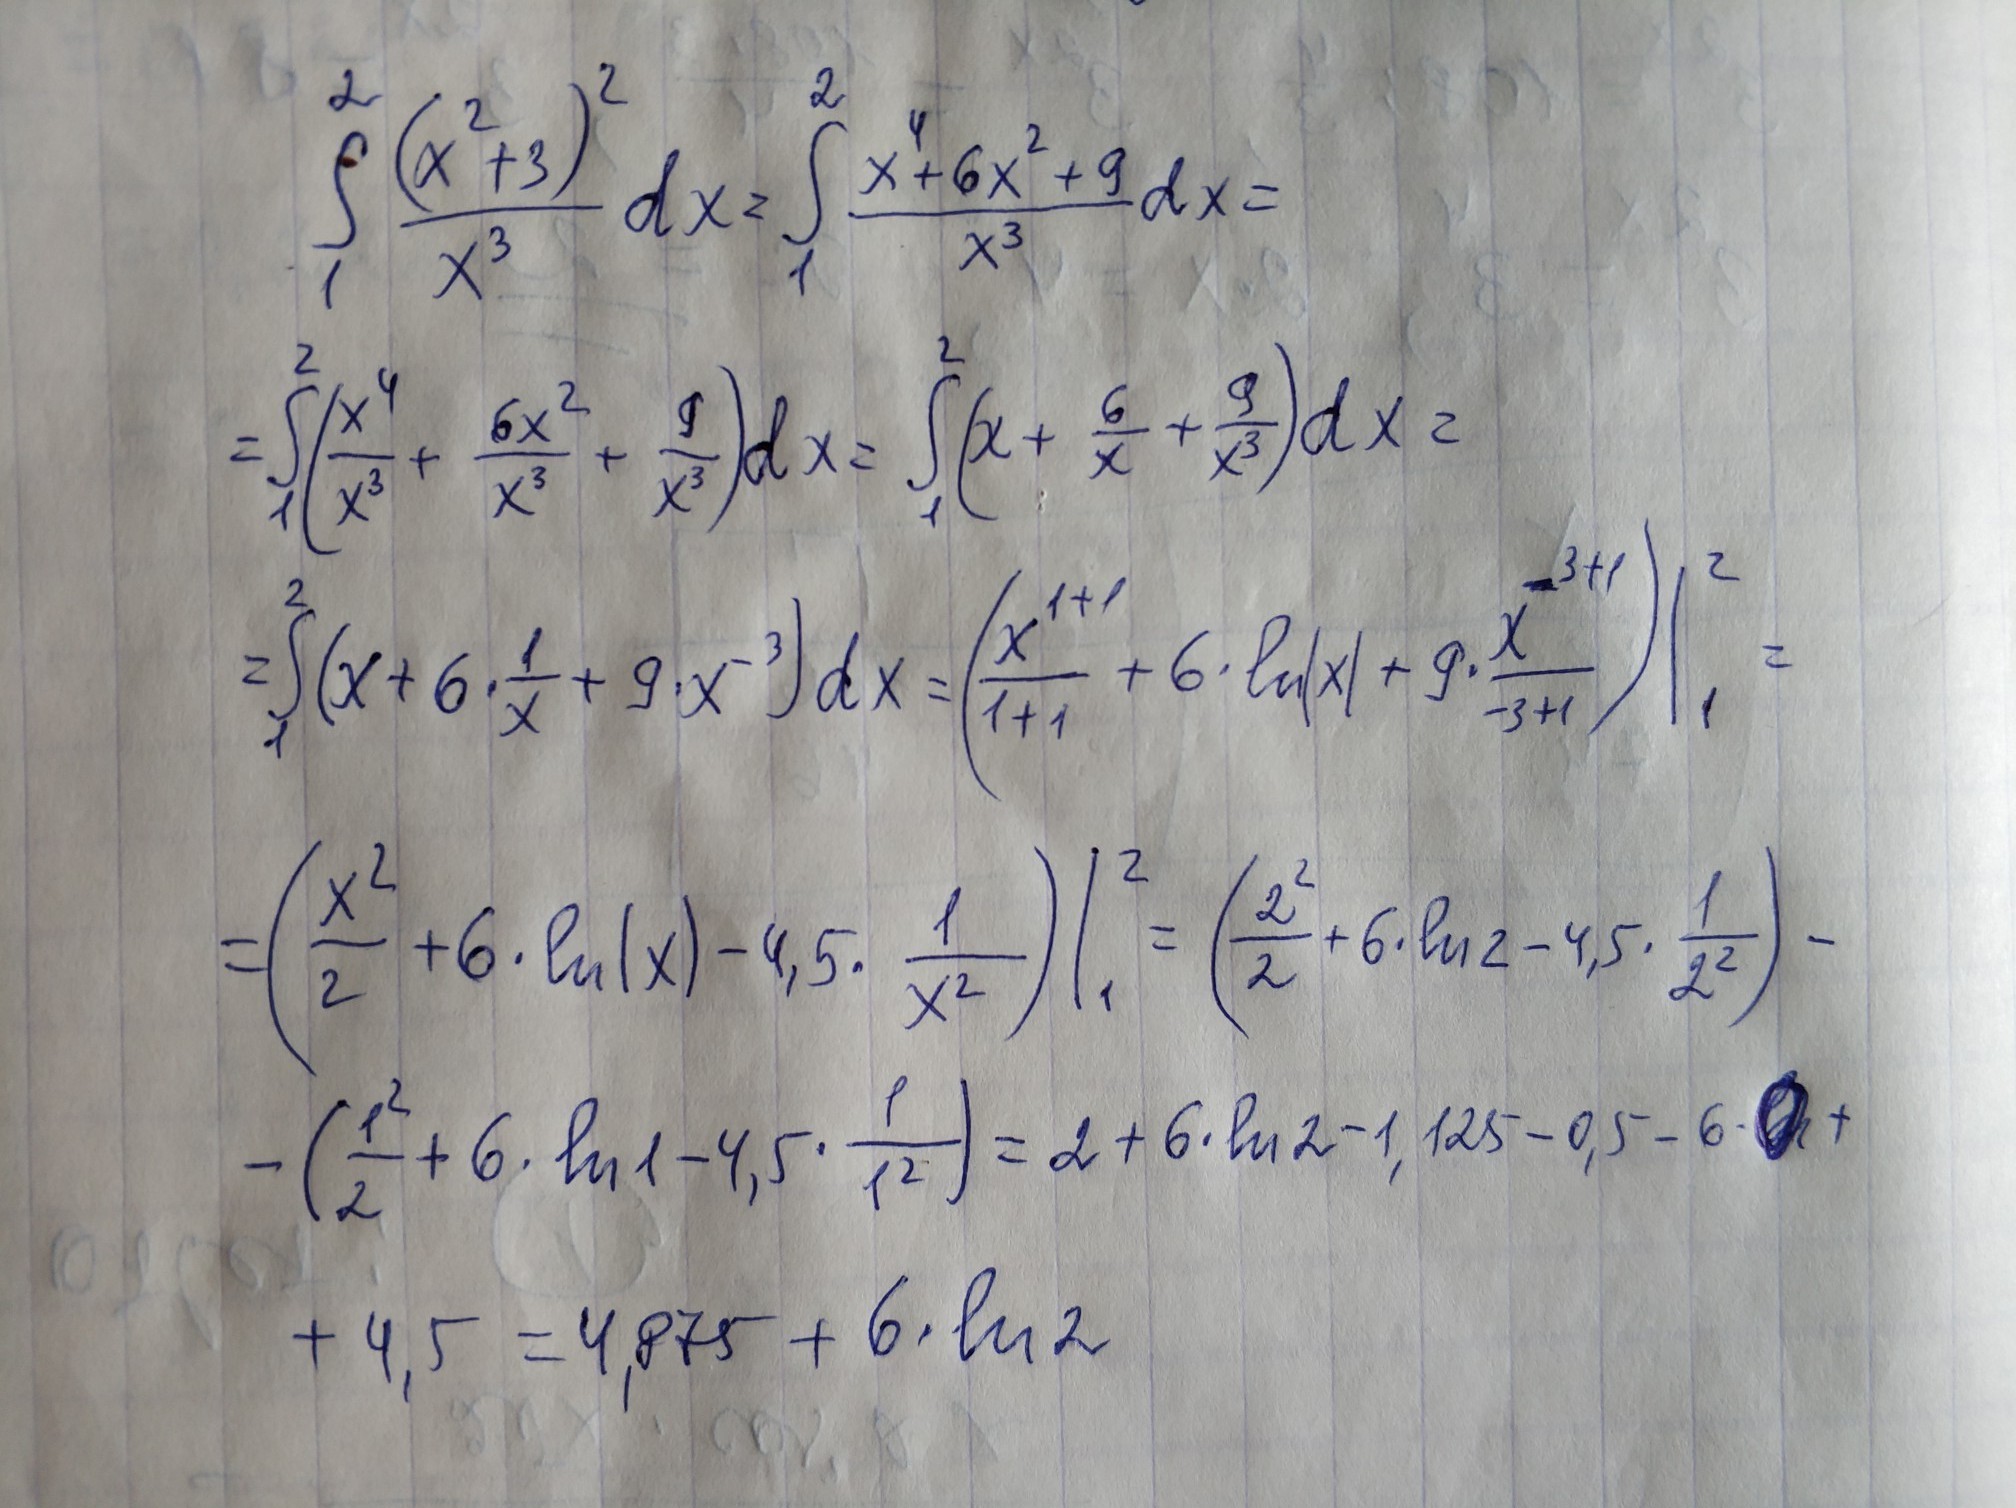 ∫₁² (x²+3)²/x³ dx = ∫₁² (x⁴+6x²+9)/x³ dx =
= ∫₁² (x⁴/x³ + 6x²/x³ + 9/x³) dx = ∫₁² (x + 6/x + 9/x³) dx =
= ∫₁² (x + 6·1/x + 9·x⁻³) dx = (x¹⁺¹/(1+1) + 6·ln|x| + 9·x⁻³⁺¹/(-3+1))|₁² =
= (x²/2 + 6·ln(x) - 4,5·1/x²)|₁² = (2²/2 + 6·ln2 - 4,5·1/2²) -
- (1²/2 + 6·ln1 - 4,5·1/1²) = 2 + 6·ln2 - 1,125 - 0,5 - 6·0 +
+ 4,5 = 4,875 + 6·ln2